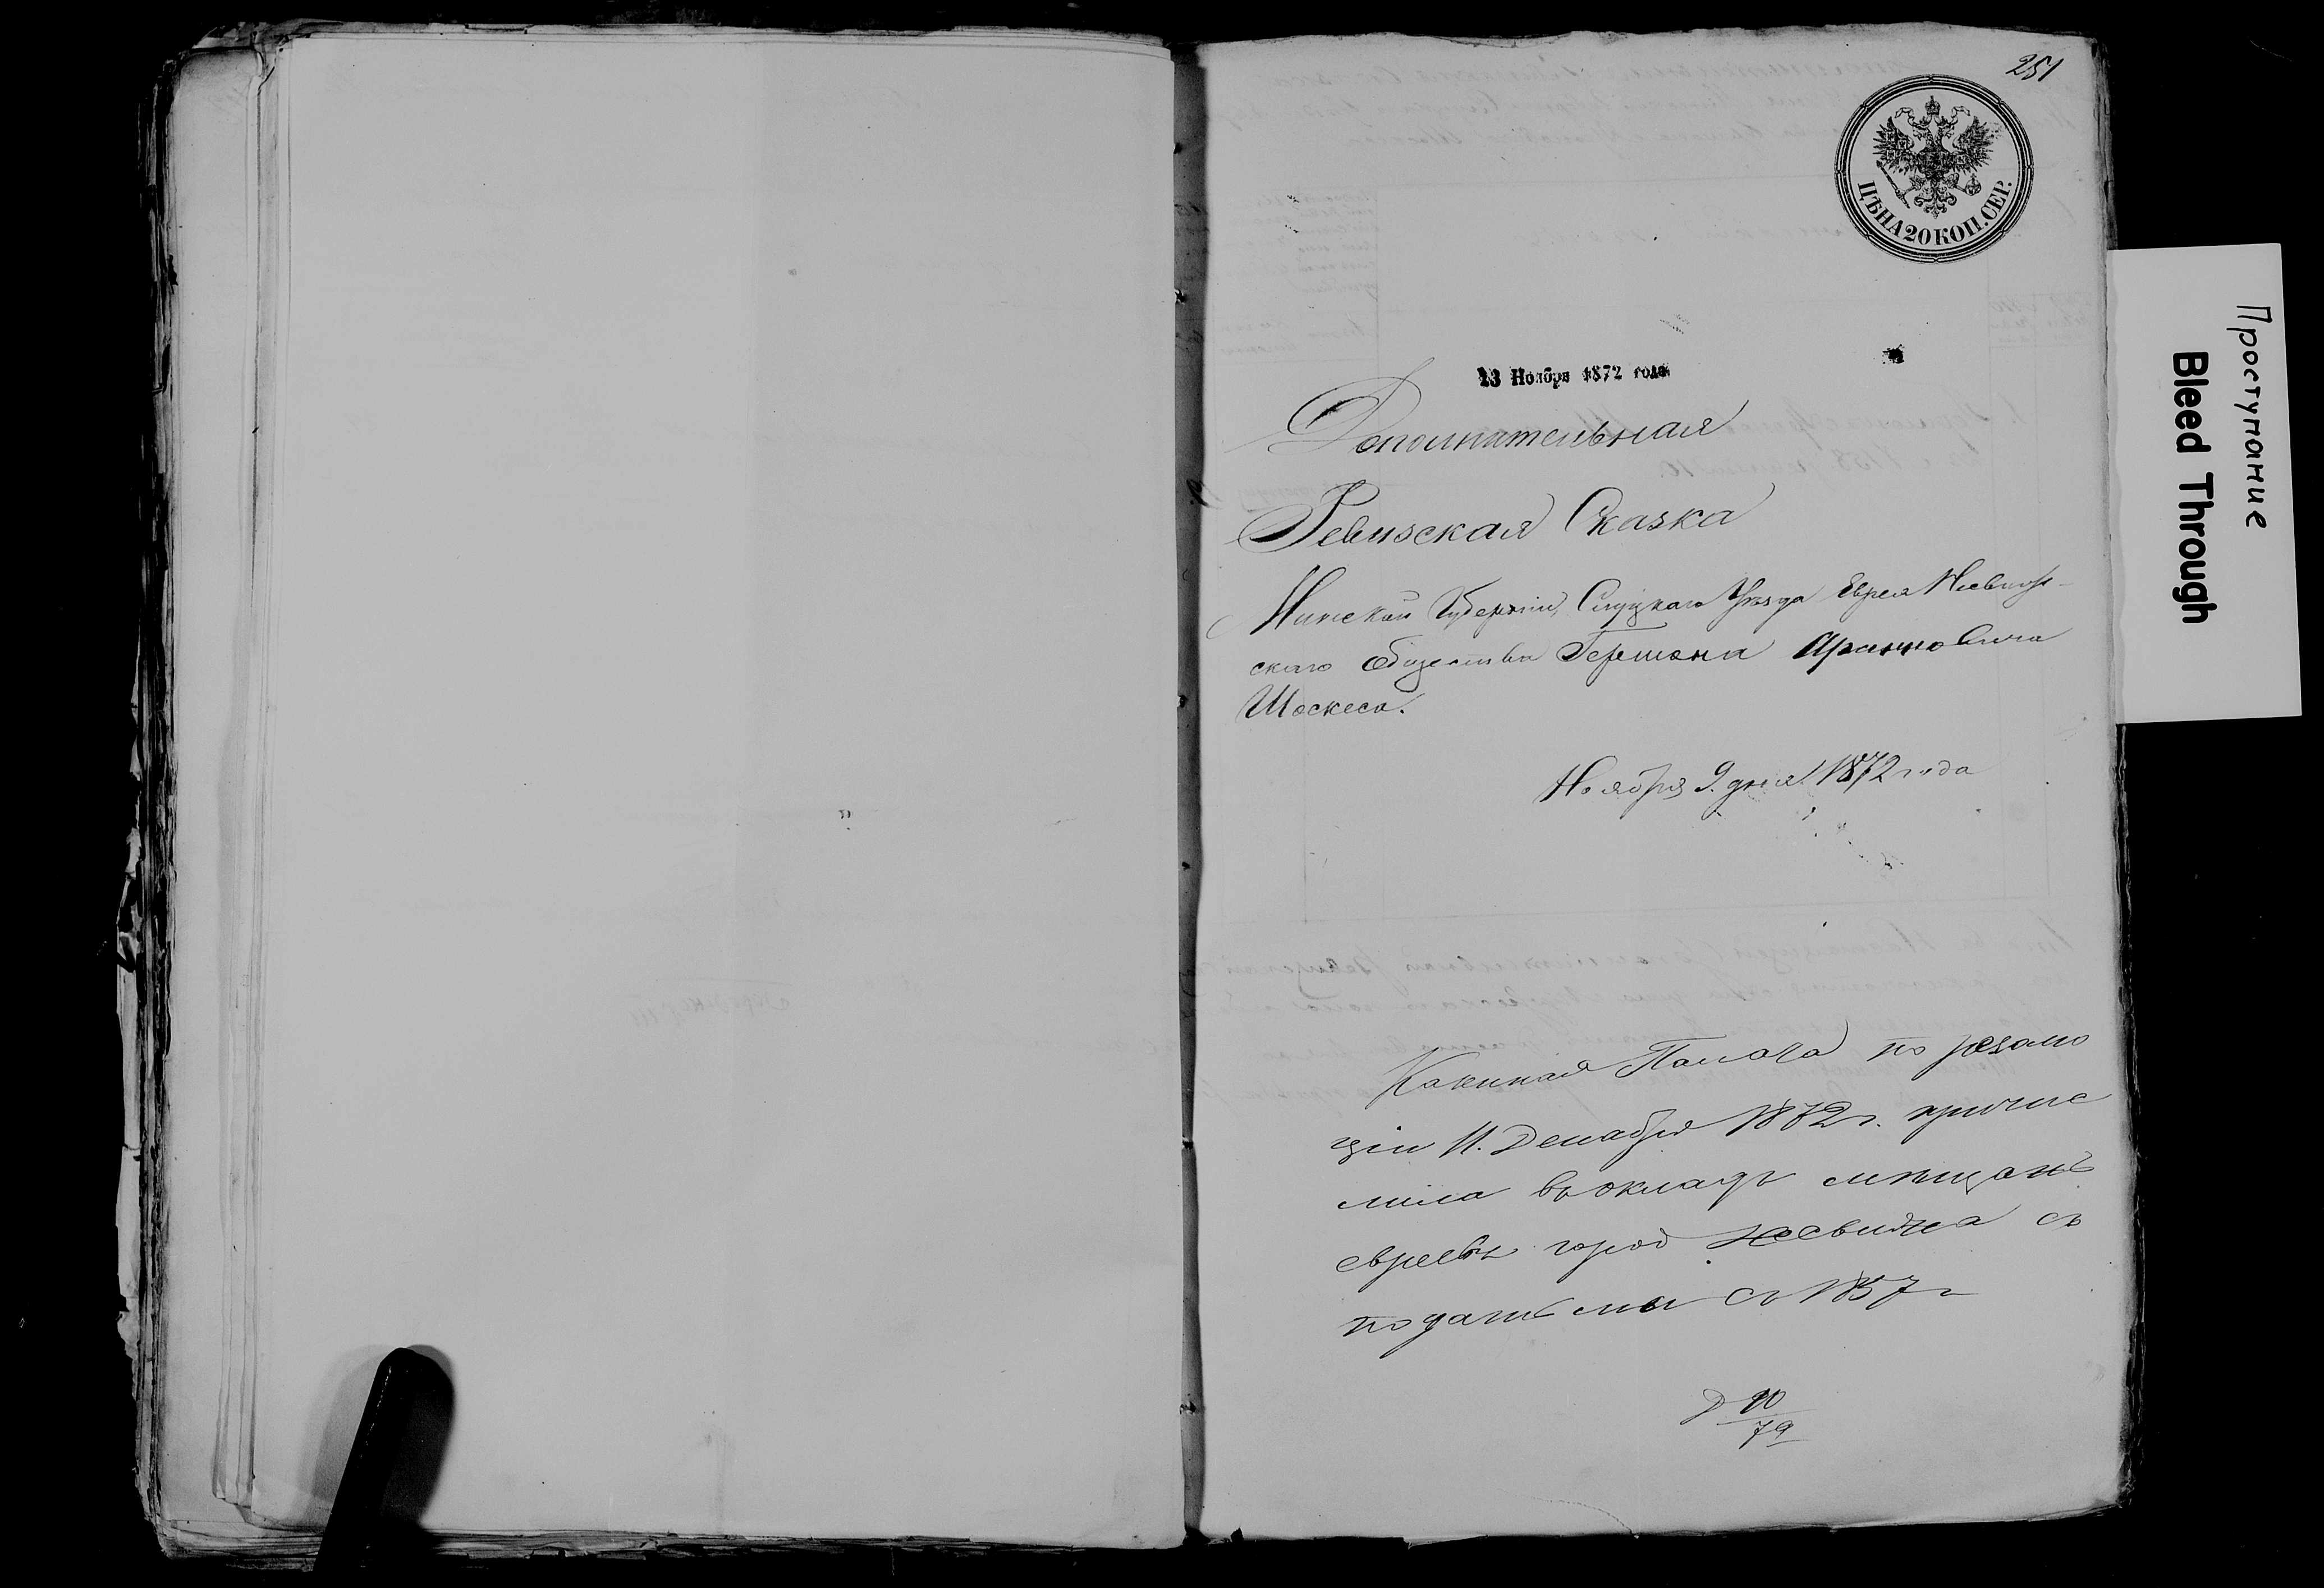 251
ЦѢНА 20 КОП. СЕР.
13 Ноября 1872 года
Дополнительная
Ревизская Сказка
Минской Губерніи, Слуцкаго Уѣзда Еврея Несвиж-
скаго общества Гершона Ароновича
Шоскеса.
Ноября 9. дня 1872 года
Казенная Палата по резолю
ціи 11. Декабря 1872 г. причис
лила въ окладъ мѣщанъ
евреевъ город Несвижа съ
податьми съ 1857 г
10
79
Проступание
Bleed Through